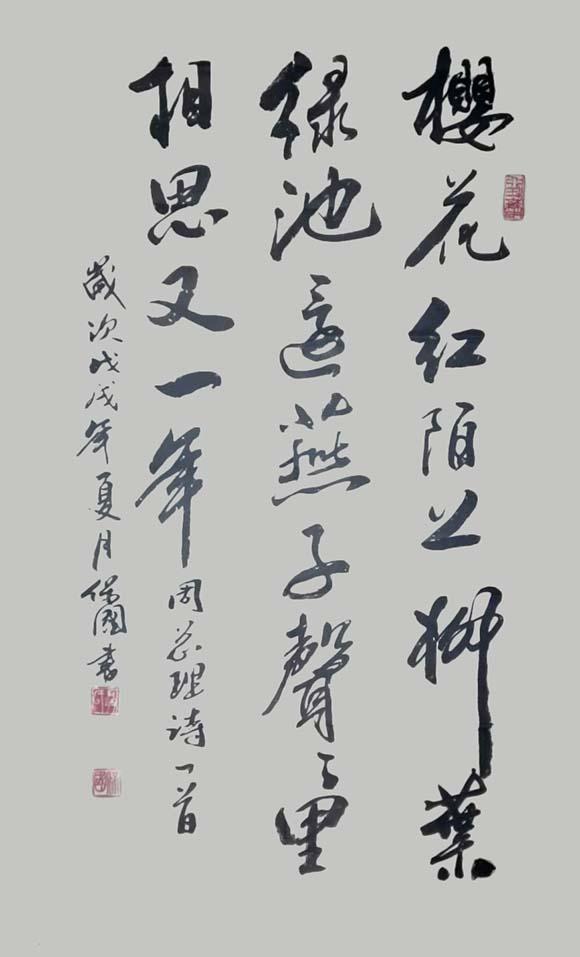 櫻花红陌上柳葉
绿池邊燕子聲〻里
相思又一年
周总理诗一首
歲次戊戌年夏月保國書